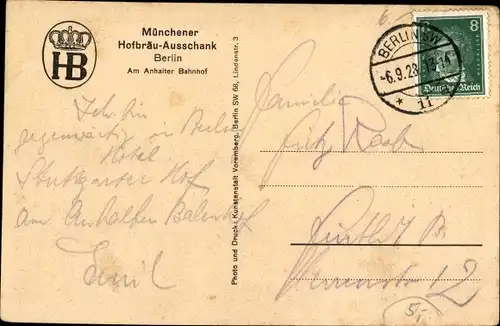 HB
Münchener
Hofbräu-Ausschank
Berlin
Am Anhalter Bahnhof
Ich bin
gegenwärtig in Berlin
Hotel
Stuttgarter Hof
am Anhalter Bahnhof
Emil
Photo und Druck: Kunstanstalt Voremberg, Berlin SW 68, Lindenstr. 3
6.
BERLIN SW
-6.9.28.13-14
* 11
8
Deutsches Reich
Familie
Fritz Raab
Fürth i B.
Herrnstr 12